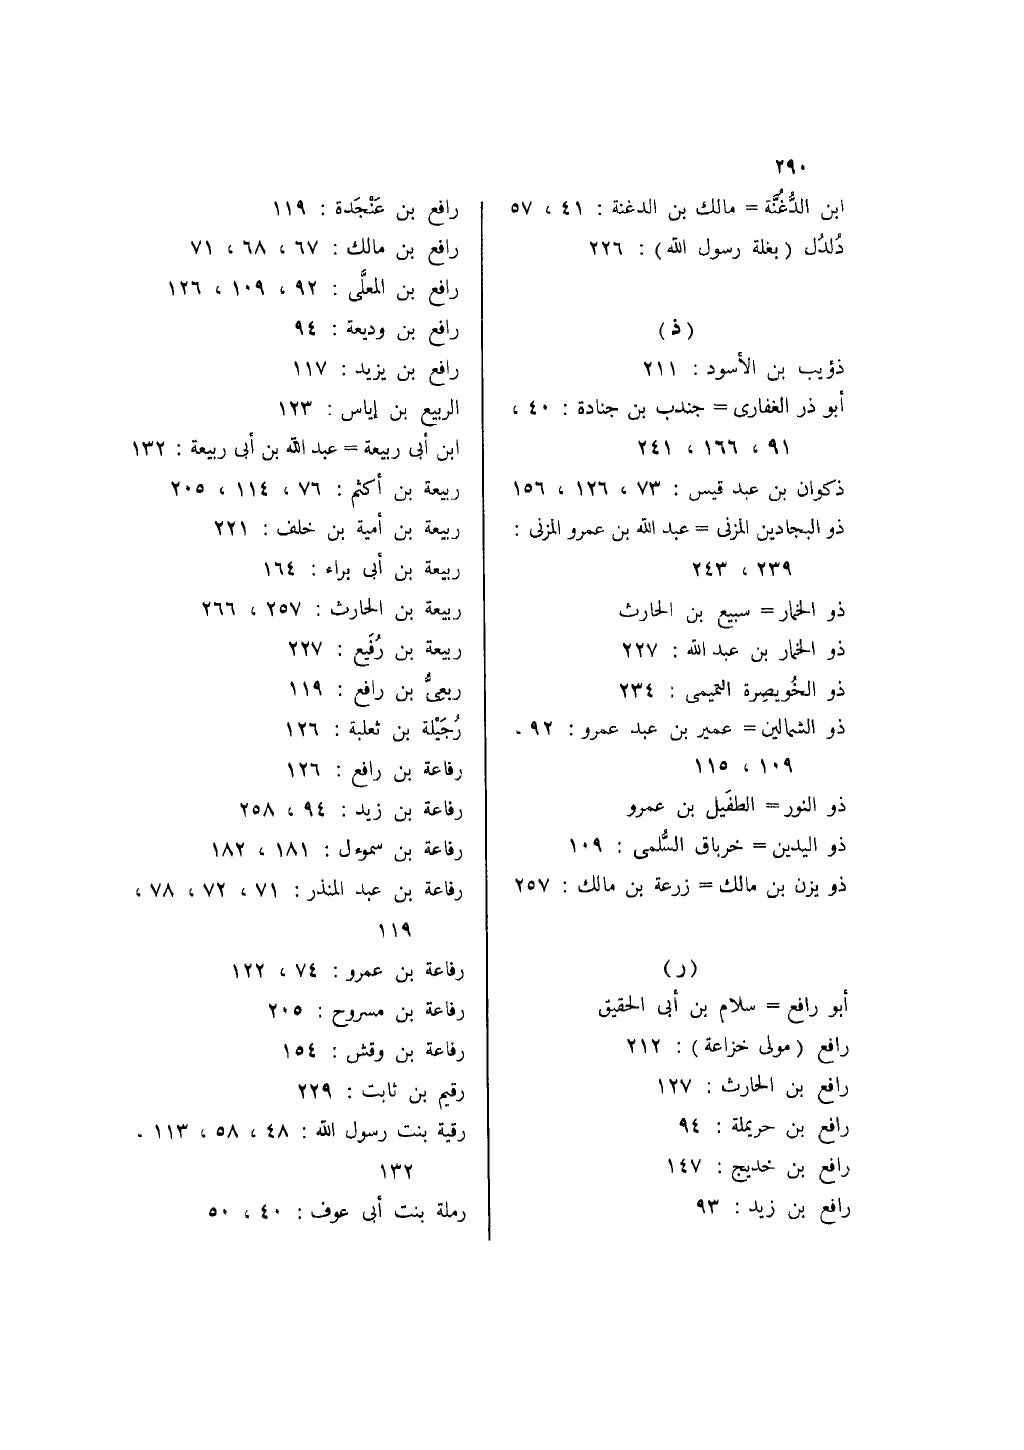 ٢٩٠
ابن الدُّغُنَّة = مالك بن الدغنة : ٤١ ، ٥٧
دُلدُل (بغلة رسول الله) : ٢٢٦
(ذ)
ذؤيب بن الأسود : ٢١١
أبو ذر الغفارى = جندب بن جنادة : ٤٠ ،
٩١ ، ١٦٦ ، ٢٤١
ذكوان بن عبد قيس : ٧٣ ، ١٢٦ ، ١٥٦
ذو البجادين المزنى = عبد الله بن عمرو المزنى :
٢٣٩ ، ٢٤٣
ذو الخمار = سبيع بن الحارث
ذو الخمار بن عبد الله : ٢٢٧
ذو الخُويصِرة التميمى : ٢٣٤
ذو الشمالين = عمير بن عبد عمرو : ٩٢ .
١٠٩ ، ١١٥
ذو النور = الطفَيل بن عمرو
ذو اليدين = خرباق السُّلمى : ١٠٩
ذو يزن بن مالك = زرعة بن مالك : ٢٥٧
(ر)
أبو رافع = سلام بن أبى الحقيق
رافع (مولى خزاعة) : ٢١٢
رافع بن الحارث : ١٢٧
رافع بن حريملة : ٩٤
رافع بن خديج : ١٤٧
رافع بن زيد : ٩٣
رافع بن عَنْجَدة : ١١٩
رافع بن مالك : ٦٧ ، ٦٨ ، ٧١
رافع بن المعلَّى : ٩٢ ، ١٠٩ ، ١٢٦
رافع بن وديعة : ٩٤
رافع بن يزيد : ١١٧
الربيع بن إياس : ١٢٣
ابن أبى ربيعة = عبد الله بن أبى ربيعة : ١٣٢
ربيعة بن أكثم : ٧٦ ، ١١٤ ، ٢٠٥
ربيعة بن أمية بن خلف : ٢٢١
ربيعة بن أبى براء : ١٦٤
ربيعة بن الحارث : ٢٥٧ ، ٢٦٦
ربيعة بن رُفَيع : ٢٢٧
ربعِىُّ بن رافع : ١١٩
رُجَيْلة بن ثعلبة : ١٢٦
رفاعة بن رافع : ١٢٦
رفاعة بن زيد : ٩٤ ، ٢٥٨
رفاعة بن سموءل : ١٨١ ، ١٨٢
رفاعة بن عبد المنذر : ٧١ ، ٧٢ ، ٧٨ ،
١١٩
رفاعة بن عمرو : ٧٤ ، ١٢٢
رفاعة بن مسروح : ٢٠٥
رفاعة بن وقش : ١٥٤
رقيم بن ثابت : ٢٢٩
رقية بنت رسول الله : ٤٨ ، ٥٨ ، ١١٣ .
١٣٢
رملة بنت أبى عوف : ٤٠ ، ٥٠